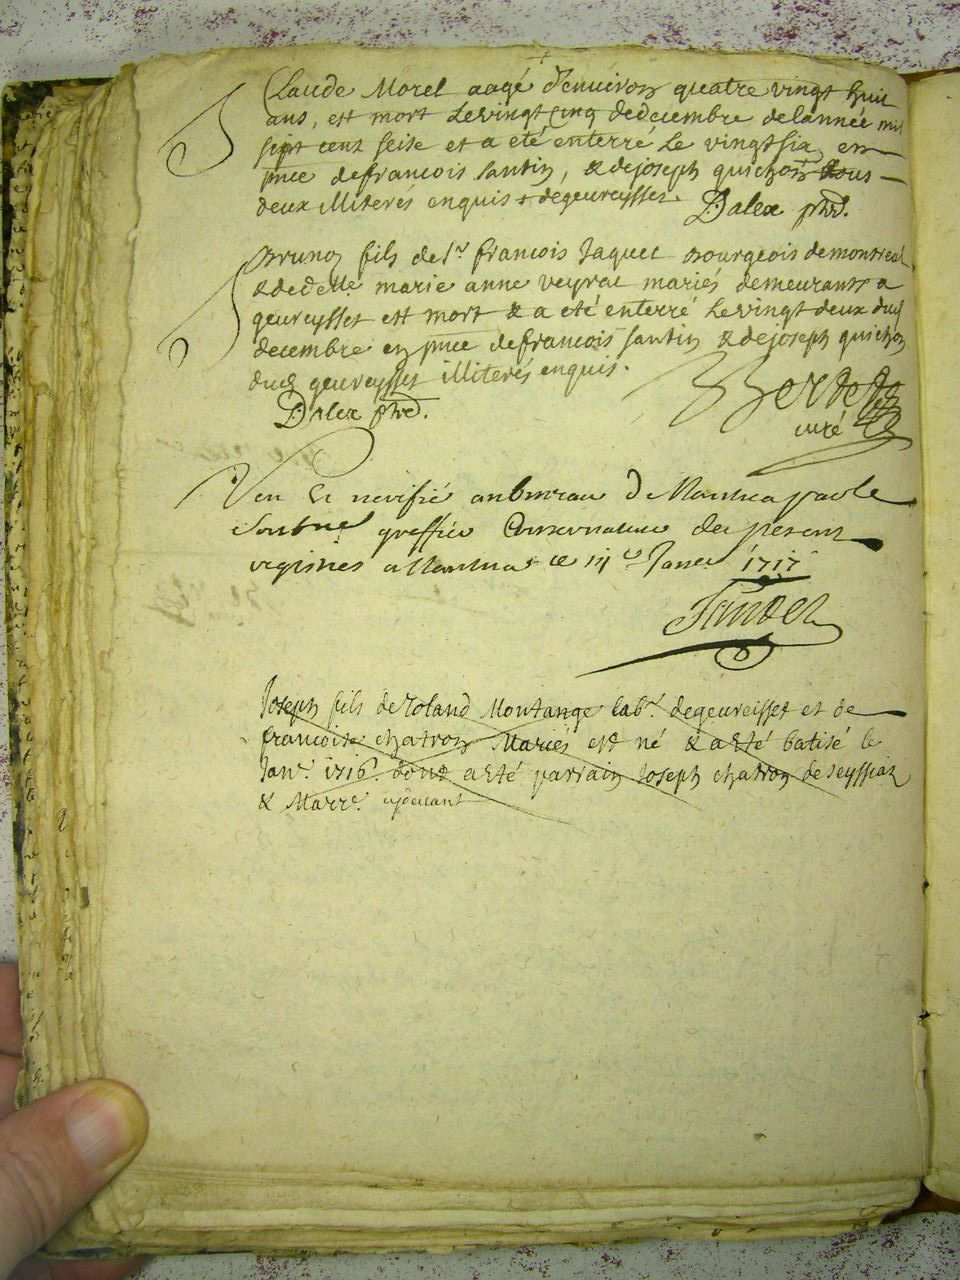 Claude Morel aagé d'enuiron quatre vingt huit
ans, est mort le vingt cinq de decembre de lannée mil
sept cent seise et a eté enterré le vingt six en
pnce de francois santin, & de joseph quichon tous
deux illiterés enquis & de geureysset. Dalex ptre.
Brunoz fils de sr. francois Jaquet bourgeois de montreal
& de delle marie anne veyrat mariés demeurants a
geureysset est mort & a eté enterré le vingt deux dud
decembre en pnce de francois santin & de joseph quichon
dud geureysset illiterés enquis.
Dalex ptre.
curé
Veu et veriffié au bureau de Nantua par le
greffier Conservateur des presents
registres a Nantua ce Janer 1717
Joseph fils de roland Montange labr. de geureisset et de
francoise chatron Mariés est né & a eté batisé le
Janr. 1716. dont a eté parrain Joseph chatron de seyssiat
& Marre.